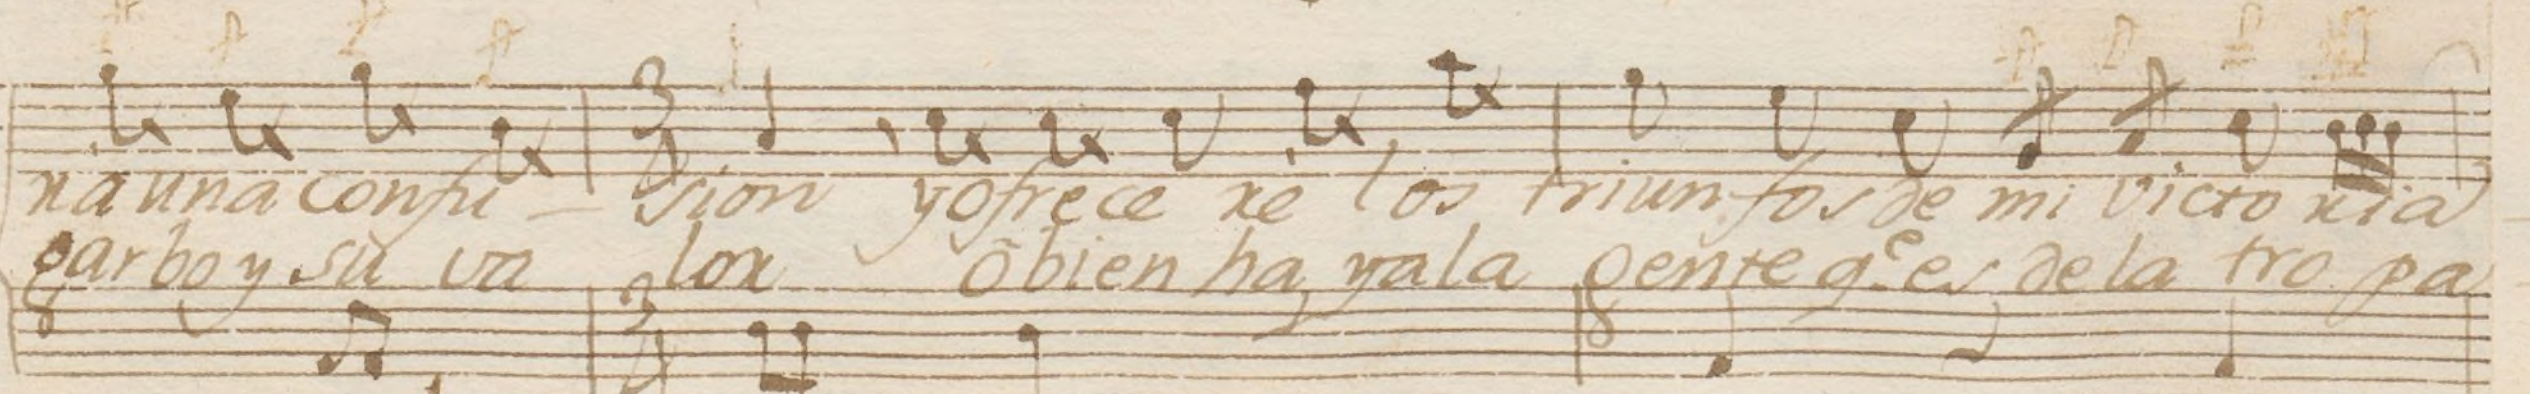 ra una confu - sion y ofrece re los triunfos de mi victo ria
garbo y su va lor ō bien ha ya la gente q.e es de la tro pa